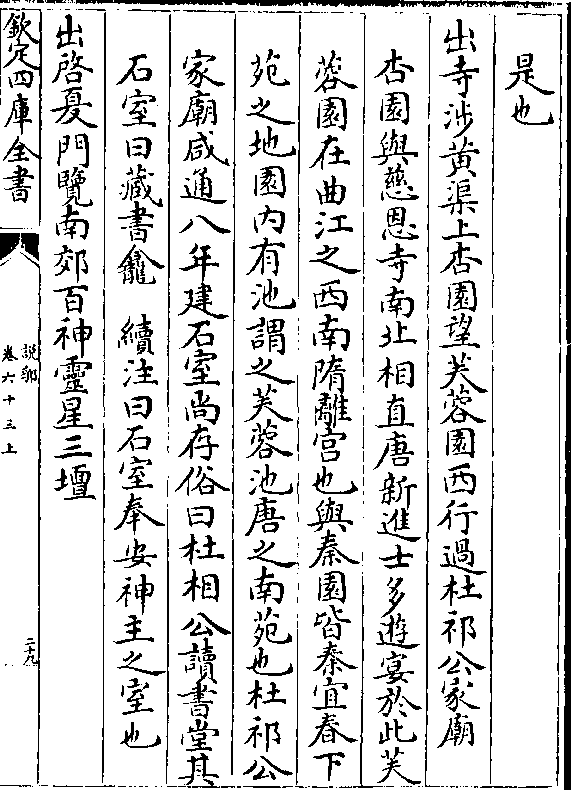 是也
出寺涉黄渠上杏園望芙蓉園西行過杜祁公家廟
杏園與慈恩寺南北相直唐新進士多遊宴於此芙
蓉園在曲江之西南隋離宫也與秦園皆秦宜春下
苑之地園内有池謂之芙蓉池唐之南苑也杜祁公
家廟咸通八年建石室尚存俗曰杜相公讀書堂其
石室曰藏書龕　續注曰石室奉安神主之室也
出啓夏門覽南郊百神靈星三壇
欽定四庫全書
說郛
卷六十三上
二十九